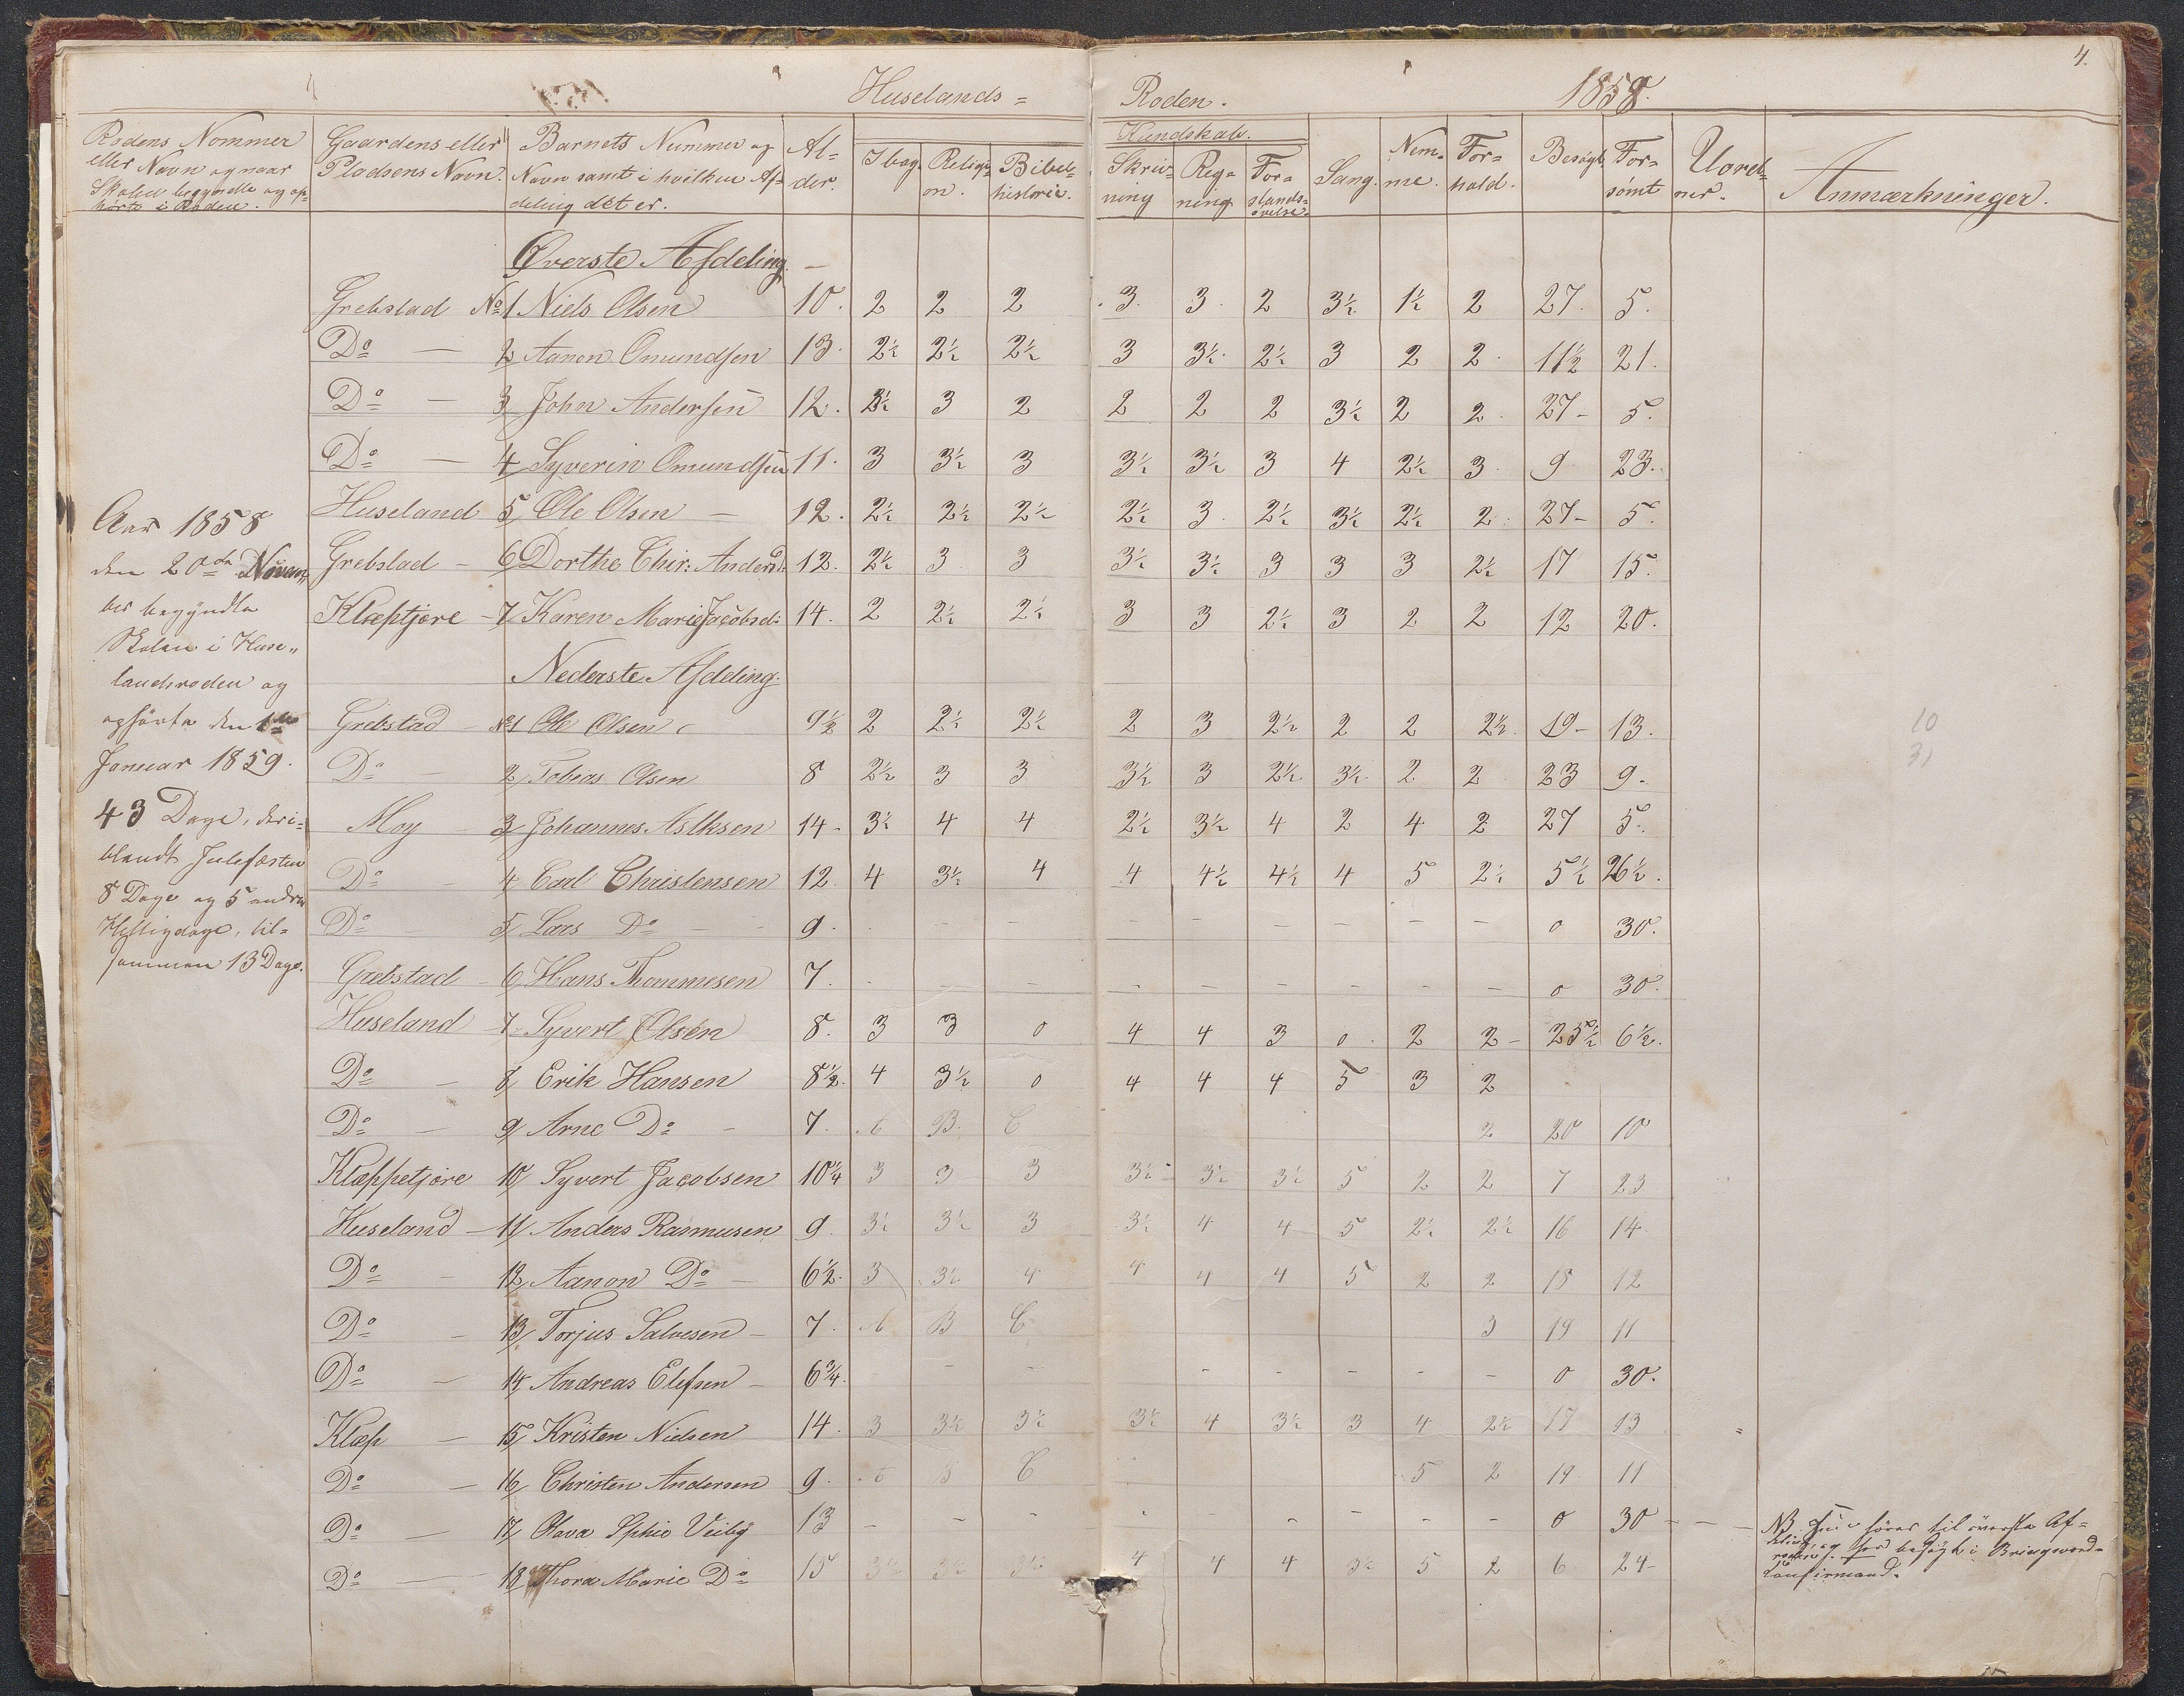 4.
Huselands= Roden. 1858.
Rodens Nommer eller Navn og naar Skolen begyndte og ophørte i Roden.
Gaardens eller Pladsens Navn.
Barnets Nummer og Navn samt i hvilken Afdeling det er.
Al=der.
I bog. Religion. Bibelhistorie.
Kundskab.
Skrivning Regning Forstandsøvelse.
Sang. Nemme. Forhold. Besøgt. Forsømt Uordner. Anmærkninger.
Øverste Afdeling.
Grebstad No 1 Niels Olsen 10. 2 2 2 3. 3. 2 3½ 1½ 2 27. 5.
Do — 2 Aanon Omundsen 13. 2½ 2½ 2½ 3 3½. 2½ 3 2 2. 11½ 21.
Do — 3 John Andersen 12. 2½ 3 2 2 2 2 3½ 2 2. 27- 5.
Do — 4 Syverin Omundsen 11. 3 3½ 3 3½ 3½ 3 4 2½ 3. 9 23.
Huseland 5 Ole Olsen — 12. 2½ 2½ 2½ 2½ 3. 2½ 3½ 2½ 2. 27- 5.
Grebstad - 6 Dorthe Chir: Andersd: 12. 2½ 3 3 3½ 3½ 3 3 3 2½ 17 15.
Klæptjøre - 7 Karen Marie Jacobsd: 14. 2 2½ 2½ 3 3 2½ 3 2 2 12 20.
Nederste Afdeling.
Grebstad - No 1 Ole Olsen 9½ 2 2½ 2½ 2 3 2½ 2 2 2½. 19- 13.
Do — 2 Tobias Olsen 8 2½ 3 3 3½ 3 2½ 3½. 2 2. 23 9.
Moy - 3 Johannes Aslksen 14- 3½ 4 4 2½ 3½ 4 2 4 2 27 5.
Do - 4 Carl Christensen 12. 4 3½ 4 4 4½ 4½ 4 5 2½ 5½ 26½.
Do 5 Lars Do - 9. - - - - - - - - 0 30.
Grebstad - 6 Hans Thommesen 7. - - - - - - - - - 0 30.
Huseland - 7 Syvert Olsén 8. 3 3 0 4 4 3 0. 2 2- 25½ 6½.
Do - 8 Erik Hansen 8½. 4 3½ 0 4 4 4 5 3 2
Do — 9 Arne Do - 7. A B. C 2 20 10
Klæppetjøre 10 Syvert Jacobsen 10¼ 3 3 3 3½ 3½ 3½ 5 2 2 7 23
Huseland - 11 Anders Rasmusen 9. 3½ 3½ 3 3½ 4 4 5 2½ 2½ 16 14.
Do - 12 Aanon Do - 6½. 3 3½ 4 4 4 4 5 2 2 18 12
Do - 13 Torjus Salvesen - 7. A B C 3 19 11
Do — 14 Andreas Elefsen - 6¾. - - - - - - - - 0 30.
Klæp — 15 Kristen Nielsen 14. 3 3½ 3½ 3½ 4 3½ 3 4 2½ 17 13
Do — 16 Christen Andersen 9. A B C 5 2 19 11
Do — 17 Olava Sphie Veiby 13 - - - - - - - - - 0 30 - - -
Do — 18 Thora Marie Do 15 3½ 3½ 3½ 4 4 4 3½ 5 2 6 24-
Aar 1858
den 20de Novem,
ber begyndte
Skolen i Huse,,
landsroden og
ophørte den 1ste
Januar 1859.
43 Dage, deri=
blandt Julefæsten
8 Dage og 5 andre
Helligdage, til=
sammen 13 Dage.
10
31
NB hører til øverste Af=
deling, og har besøgt i Bringsværd=
roden.
Confirmand.